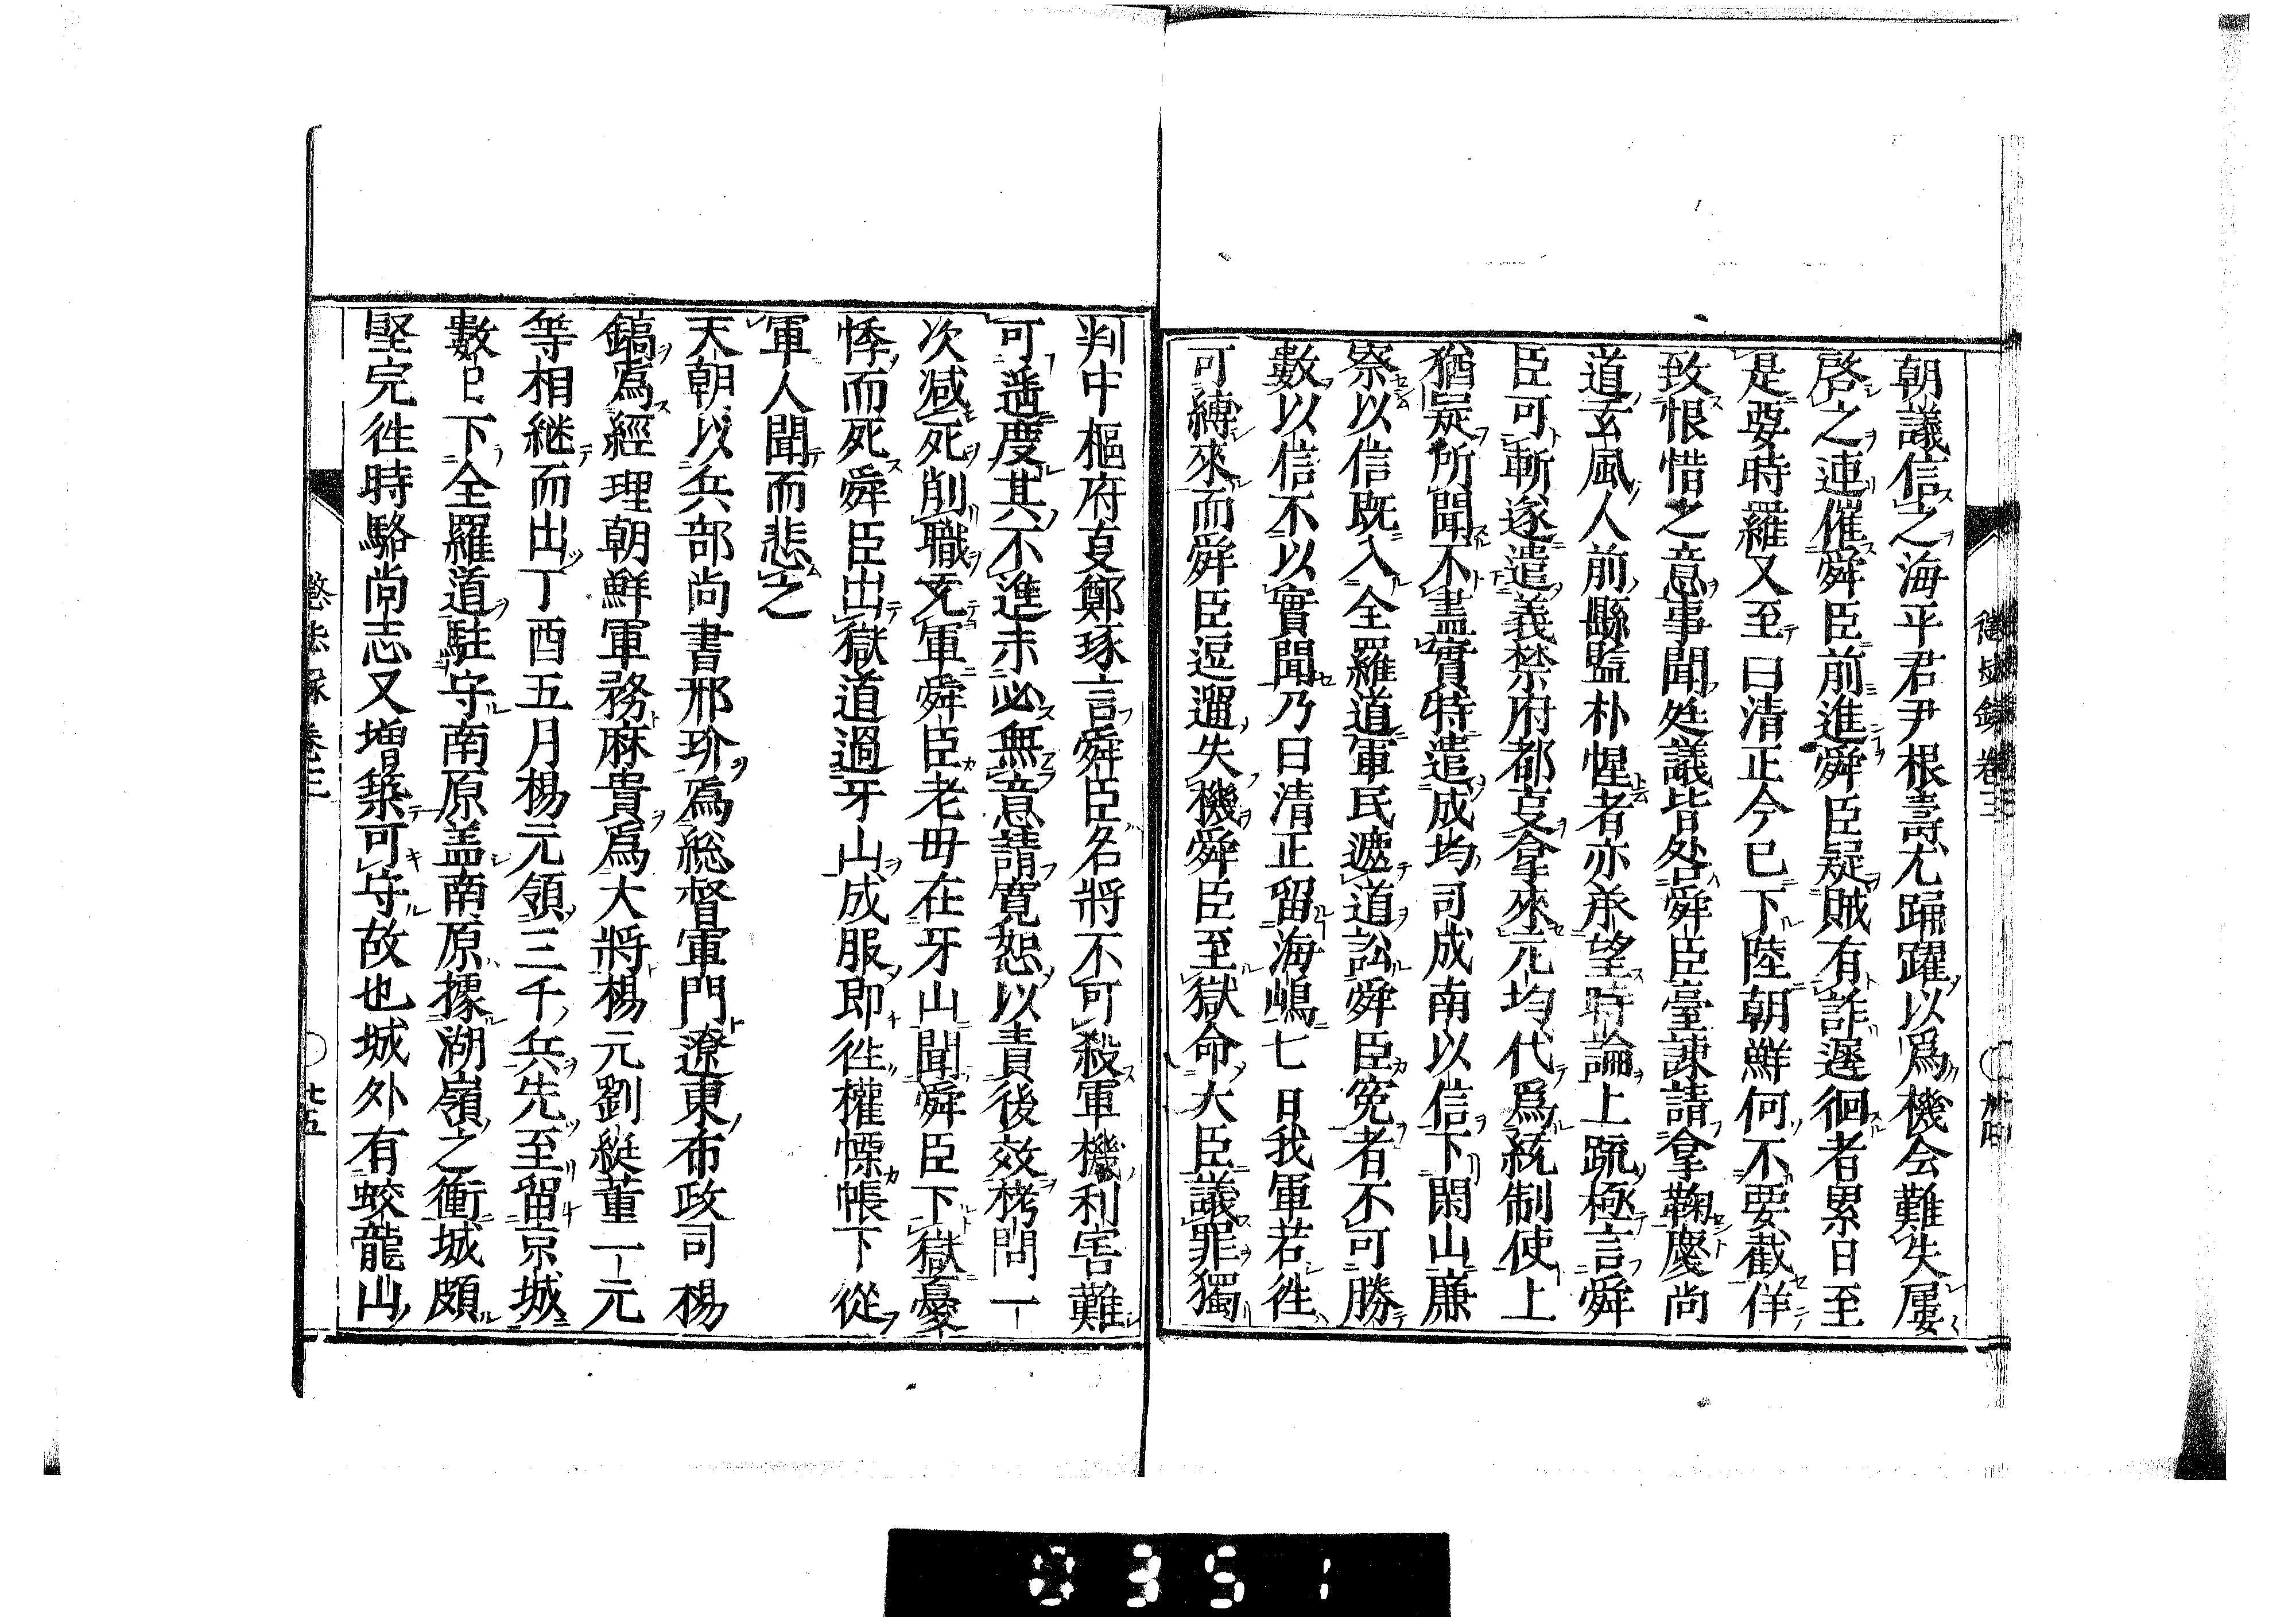 朝議信之海平君尹根壽尤踊躍以爲機会難失屢
啓之連催舜臣前進舜臣疑賊有詐遲徊者累日至
是要時羅又至曰清正今已下陸朝鮮何不要截佯
致恨惜之意事聞廷議皆咎舜臣臺諫請拿鞠慶尚
道玄風人前縣監朴惺者亦承望時論上疏極言舜
臣可斬遂遣義禁府都事拿來元均代爲統制使上
猶疑所聞不盡實特遣成均司成南以信下閑山廉
察以信既入全羅道軍民遮道訟舜臣寃者不可勝
數以信不以實聞乃曰清正留海嶋七日我軍若徃
可縛來而舜臣逗遛失機舜臣至獄命大臣議罪獨
判中樞府事鄭琢言舜臣名將不可殺軍機利害難
可遥度其不進未必無意請寛恕以責後效栲問一
次减死削職充軍舜臣老毋在牙山聞舜臣下獄憂
悸而死舜臣出獄道過牙山成服即徃權慄帳下從
軍人聞而悲之
天朝以兵部尚書邢玠爲総督軍門遼東布政司楊
鎬爲經理朝鮮軍務麻貴爲大將楊元劉綎董一元
等相継而出丁酉五月楊元領三千兵先至留京城
數日下全羅道駐守南原盖南原據湖嶺之衝城頗
堅完徃時駱尚志又増築可守故也城外有蛟龍山
懲毖録卷三